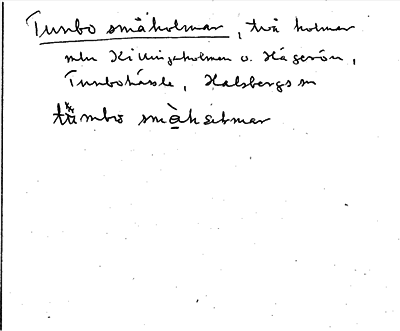 Tunbo småholmar, två holmar
mln Killingeholmen o. Hägerön,
Tunbohässle, Halsbergs sn
småholmar